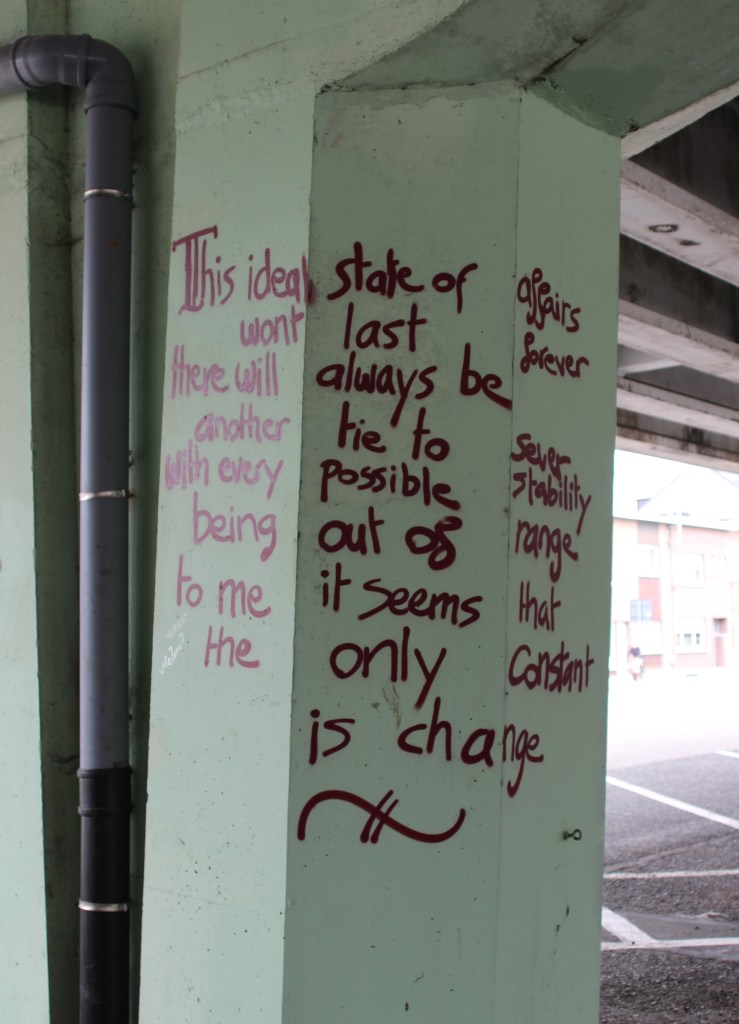 This ideal state of affairs
wont last forever
there will always be
another tie to sever
with every possible stability
being out of range
to me it seems that
the only constant
is change